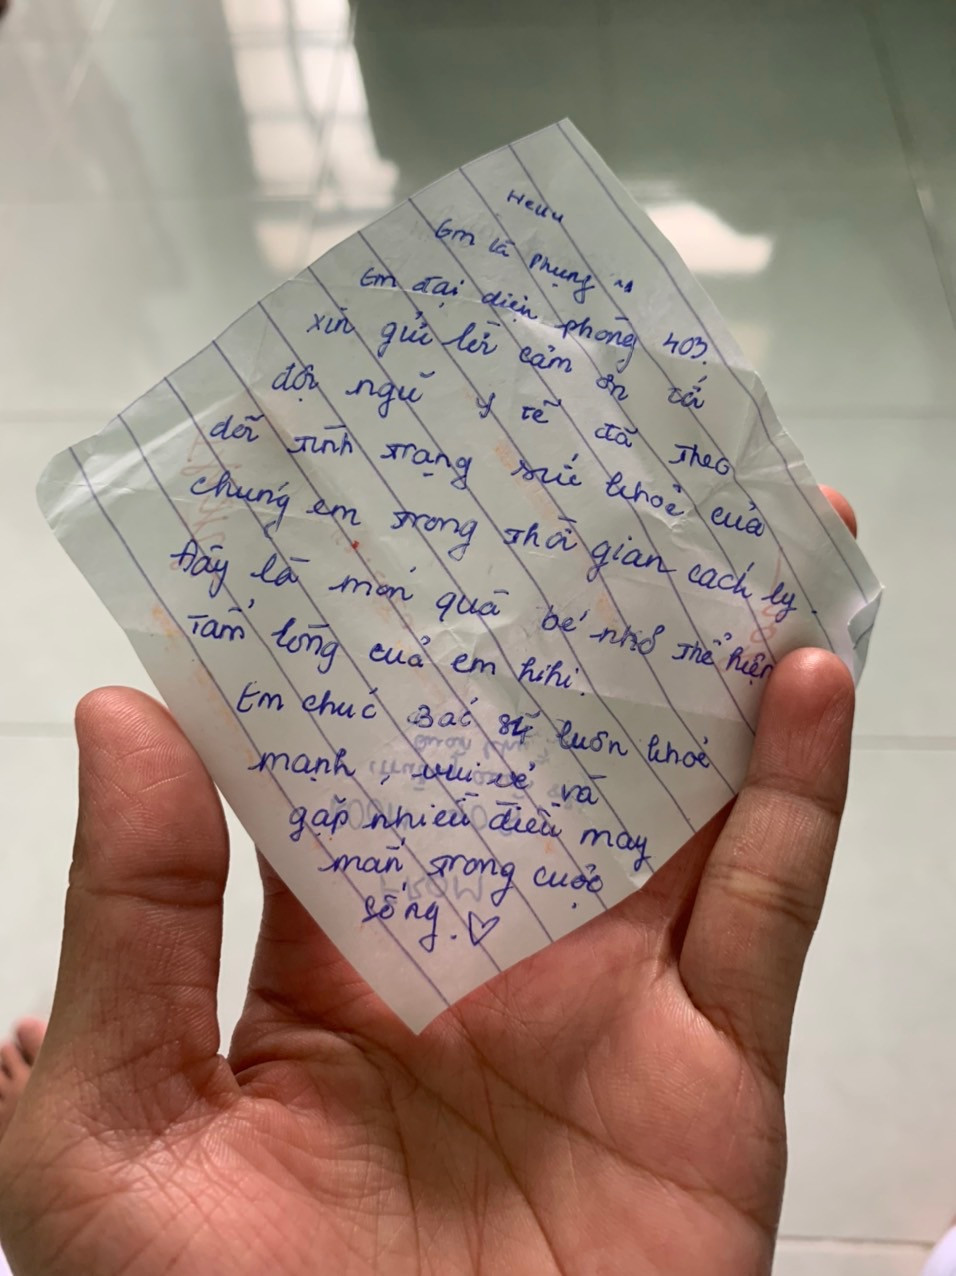 Hellu
Em là Phụng ^^
Em đại diện phòng 403.
xin gửi lời cảm ơn tới
đội ngũ y tế đã theo
dõi tình trạng sức khoẻ của
chúng em trong thời gian cách ly.
Đây là món quà bé nhỏ thể hiện
tấm lòng của em hihi.
Em chúc Bác sĩ luôn khoẻ
mạnh, vui vẻ và
gặp nhiều điều may
mắn trong cuộc
sống. ♡